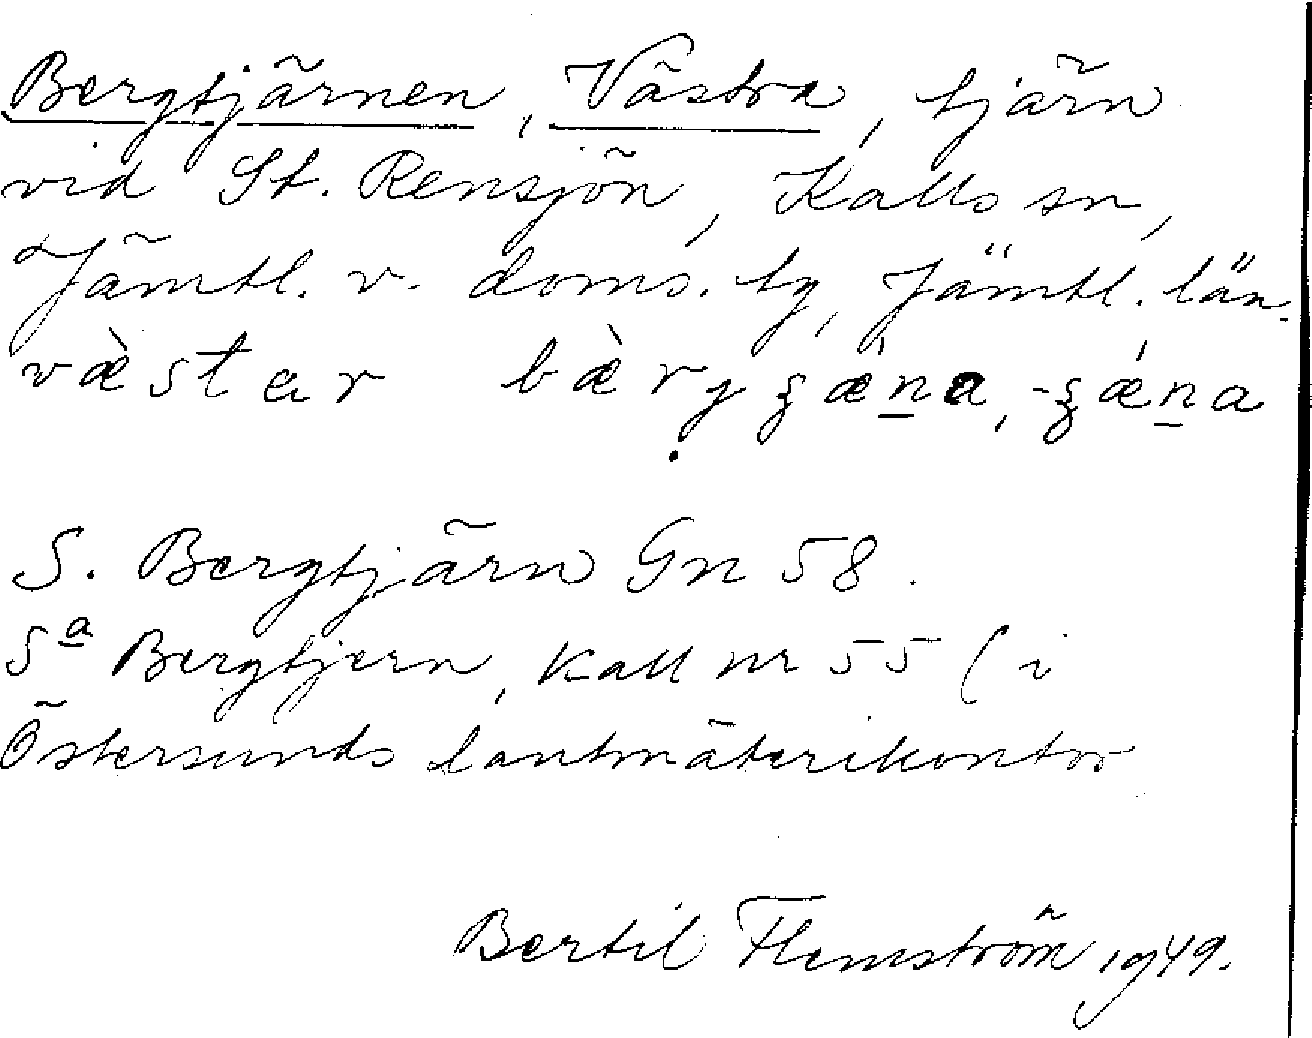 Bergtjärnen, Västra, tjärn
vid St. Rensjön, Kalls sn,
Jämtl. v. doms. tg, Jämtl. län.
væ̀star bæ̀rgʂæn̲a, -ʂǽn̲a
S. Bergtjärn Gn 58.
Sª Bergtjern, Kall nr 55 (i
Östersunds lantmäterikontor
Bertil Flemström 1949.